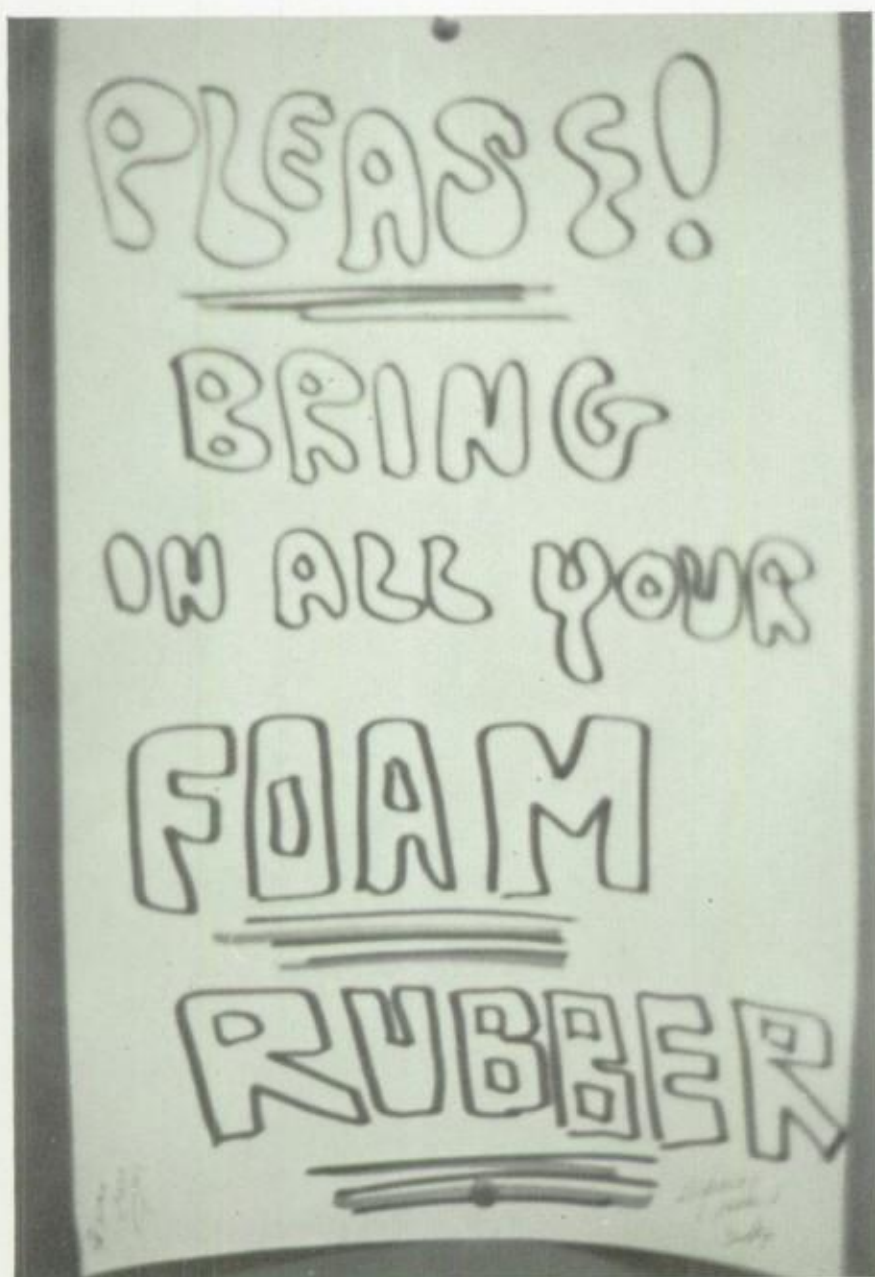 PLEASE!
BRING
IN ALL YOUR
FOAM
RUBBER